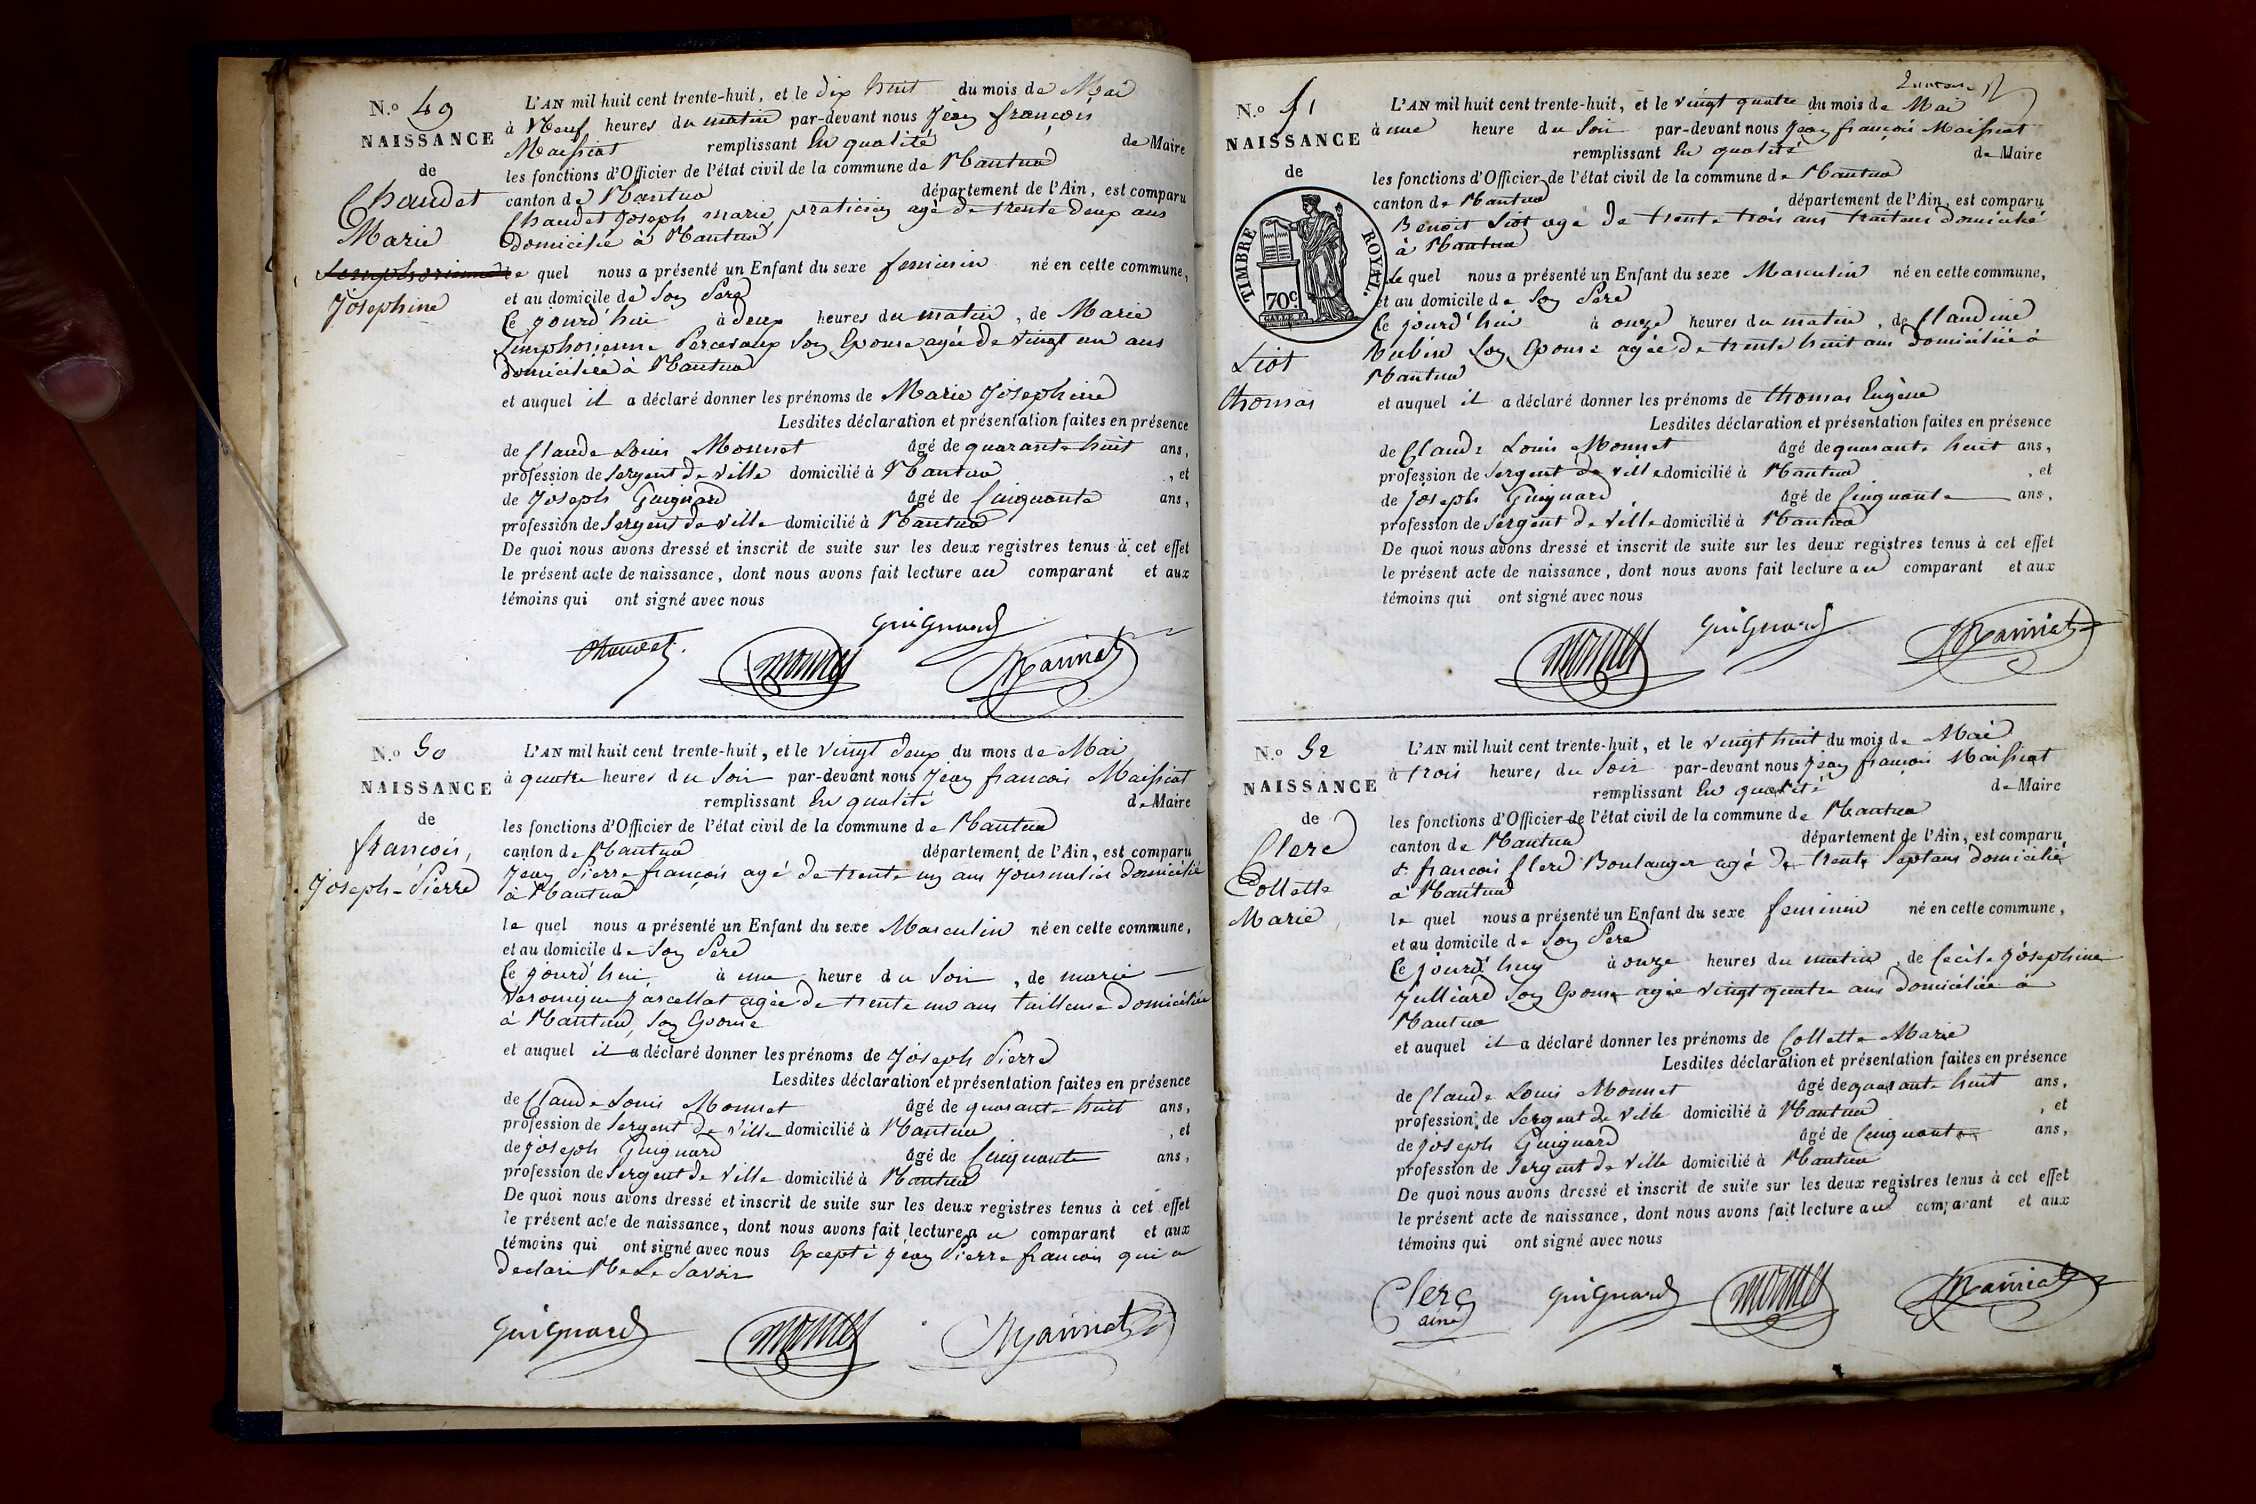 N.o 49
NAISSANCE
de
Chaudet
Marie
Josephine
L'AN mil huit cent trente-huit, et le dix huit du mois de Mai
à Neuf heures du matin par-devant nous Jean françois
Maissiat remplissant En qualité de Maire
les fonctions d'Officier de l'état civil de la commune de Nantua
canton de Nantua département de l'Ain, est comparu
Chaudet Joseph marie, praticien agé de trente deux ans
domicilié à Nantua
le quel nous a présenté un Enfant du sexe feminin né en cette commune,
et au domicile de Son Pere
Ce jourd'hui à deux heures du matin, de Marie
Simphorienne Percevaux Son Epouse agée de vingt un ans
domiciliée à Nantua
et auquel il a déclaré donner les prénoms de Marie Josephine
Lesdites déclaration et présentation faites en présence
de Claude Louis Monnet âgé de quarante huit ans,
profession de Sergent de Ville domicilié à Nantua, et
de Joseph Guignard âgé de Cinquante ans,
profession de Sergent de Ville domicilié à Nantua
De quoi nous avons dressé et inscrit de suite sur les deux registres tenus à cet effet
le présent acte de naissance, dont nous avons fait lecture au comparant et aux
témoins qui ont signé avec nous
Chaudet
Monnet
Guignard
Maissiat
N.o 50
NAISSANCE
de
françois,
Joseph-Pierre
L'AN mil huit cent trente-huit, et le vingt deux du mois de Mai
à quatre heures du Soir par-devant nous Jean francois Maissiat
remplissant En qualité de Maire
les fonctions d'Officier de l'état civil de la commune de Nantua
canton de Nantua département de l'Ain, est comparu
Jean Pierre françois agé de trente un ans Journalier domicilié
à Nantua
le quel nous a présenté un Enfant du sexe Masculin né en cette commune,
et au domicile de Son Pere
Ce jourd'hui à une heure du Soir, de marie
Veronique Jarcellat agée de trente un ans tailleuse domiciliée
à Nantua, Son Epouse
et auquel il a déclaré donner les prénoms de Joseph Pierre
Lesdites déclaration et présentation faites en présence
de Claude Louis Monnet âgé de quarante huit ans,
profession de Sergent de Ville domicilié à Nantua, et
de Joseph Guignard âgé de Cinquante ans,
profession de Sergent de Ville domicilié à Nantua
De quoi nous avons dressé et inscrit de suite sur les deux registres tenus à cet effet
le présent acte de naissance, dont nous avons fait lecture au comparant et aux
témoins qui ont signé avec nous Excepté Jean Pierre francois qui a
declaré Ne Le Savoir
Guignard
Monnet
Maissiat
N.o 51
NAISSANCE
de
TIMBRE ROYAL.
70c
Liot
thomas
L'AN mil huit cent trente-huit, et le vingt quatre du mois de Mai
à une heure du Soir par-devant nous Jean françois Maissiat
remplissant En qualité de Maire
les fonctions d'Officier de l'état civil de la commune de Nantua
canton de Nantua département de l'Ain, est comparu
Benoit Liot agé de trente trois ans traiteur domicilié
à Nantua
le quel nous a présenté un Enfant du sexe Masculin né en cette commune,
et au domicile de Son Pere
Ce jourd'hui à onze heures du matin, de Claudine
Aubin Son Epouse agée de trente huit ans domiciliée à
Nantua
et auquel il a déclaré donner les prénoms de thomas Eugène
Lesdites déclaration et présentation faites en présence
de Claude Louis Monnet âgé de quarante huit ans,
profession de Sergent de Ville domicilié à Nantua, et
de Joseph Guignard âgé de Cinquante ans,
profession de Sergent de Ville domicilié à Nantua
De quoi nous avons dressé et inscrit de suite sur les deux registres tenus à cet effet
le présent acte de naissance, dont nous avons fait lecture au comparant et aux
témoins qui ont signé avec nous
Monnet
Guignard
Maissiat
N.o 52
NAISSANCE
de
Clerc
Collette
Marie
L'AN mil huit cent trente-huit, et le vingt huit du mois de Mai
à trois heures du Soir par-devant nous Jean françois Maissiat
remplissant En qualité de Maire
les fonctions d'Officier de l'état civil de la commune de Nantua
canton de Nantua département de l'Ain, est comparu
francois Clerc Boulanger agé de trente Sept ans domicilié
à Nantua
le quel nous a présenté un Enfant du sexe feminin né en cette commune,
et au domicile de Son Pere
Ce jourd'huy à onze heures du matin, de Cecile Josephine
Julliard Son Epouse agée vingt quatre ans domiciliée à
Nantua
et auquel il a déclaré donner les prénoms de Collette Marie
Lesdites déclaration et présentation faites en présence
de Claude Louis Monnet âgé de quarante huit ans,
profession de Sergent de Ville domicilié à Nantua, et
de Joseph Guignard âgé de Cinquante ans,
profession de Sergent de Ville domicilié à Nantua
De quoi nous avons dressé et inscrit de suite sur les deux registres tenus à cet effet
le présent acte de naissance, dont nous avons fait lecture au comparant et aux
témoins qui ont signé avec nous
Clerc
ainé
Guignard
Monnet
Maissiat